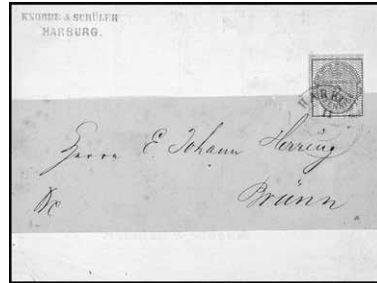 KNOBBE & SCHÜLER
HARBURG.
HARB
Herrn E. Johann Herring
Brünn